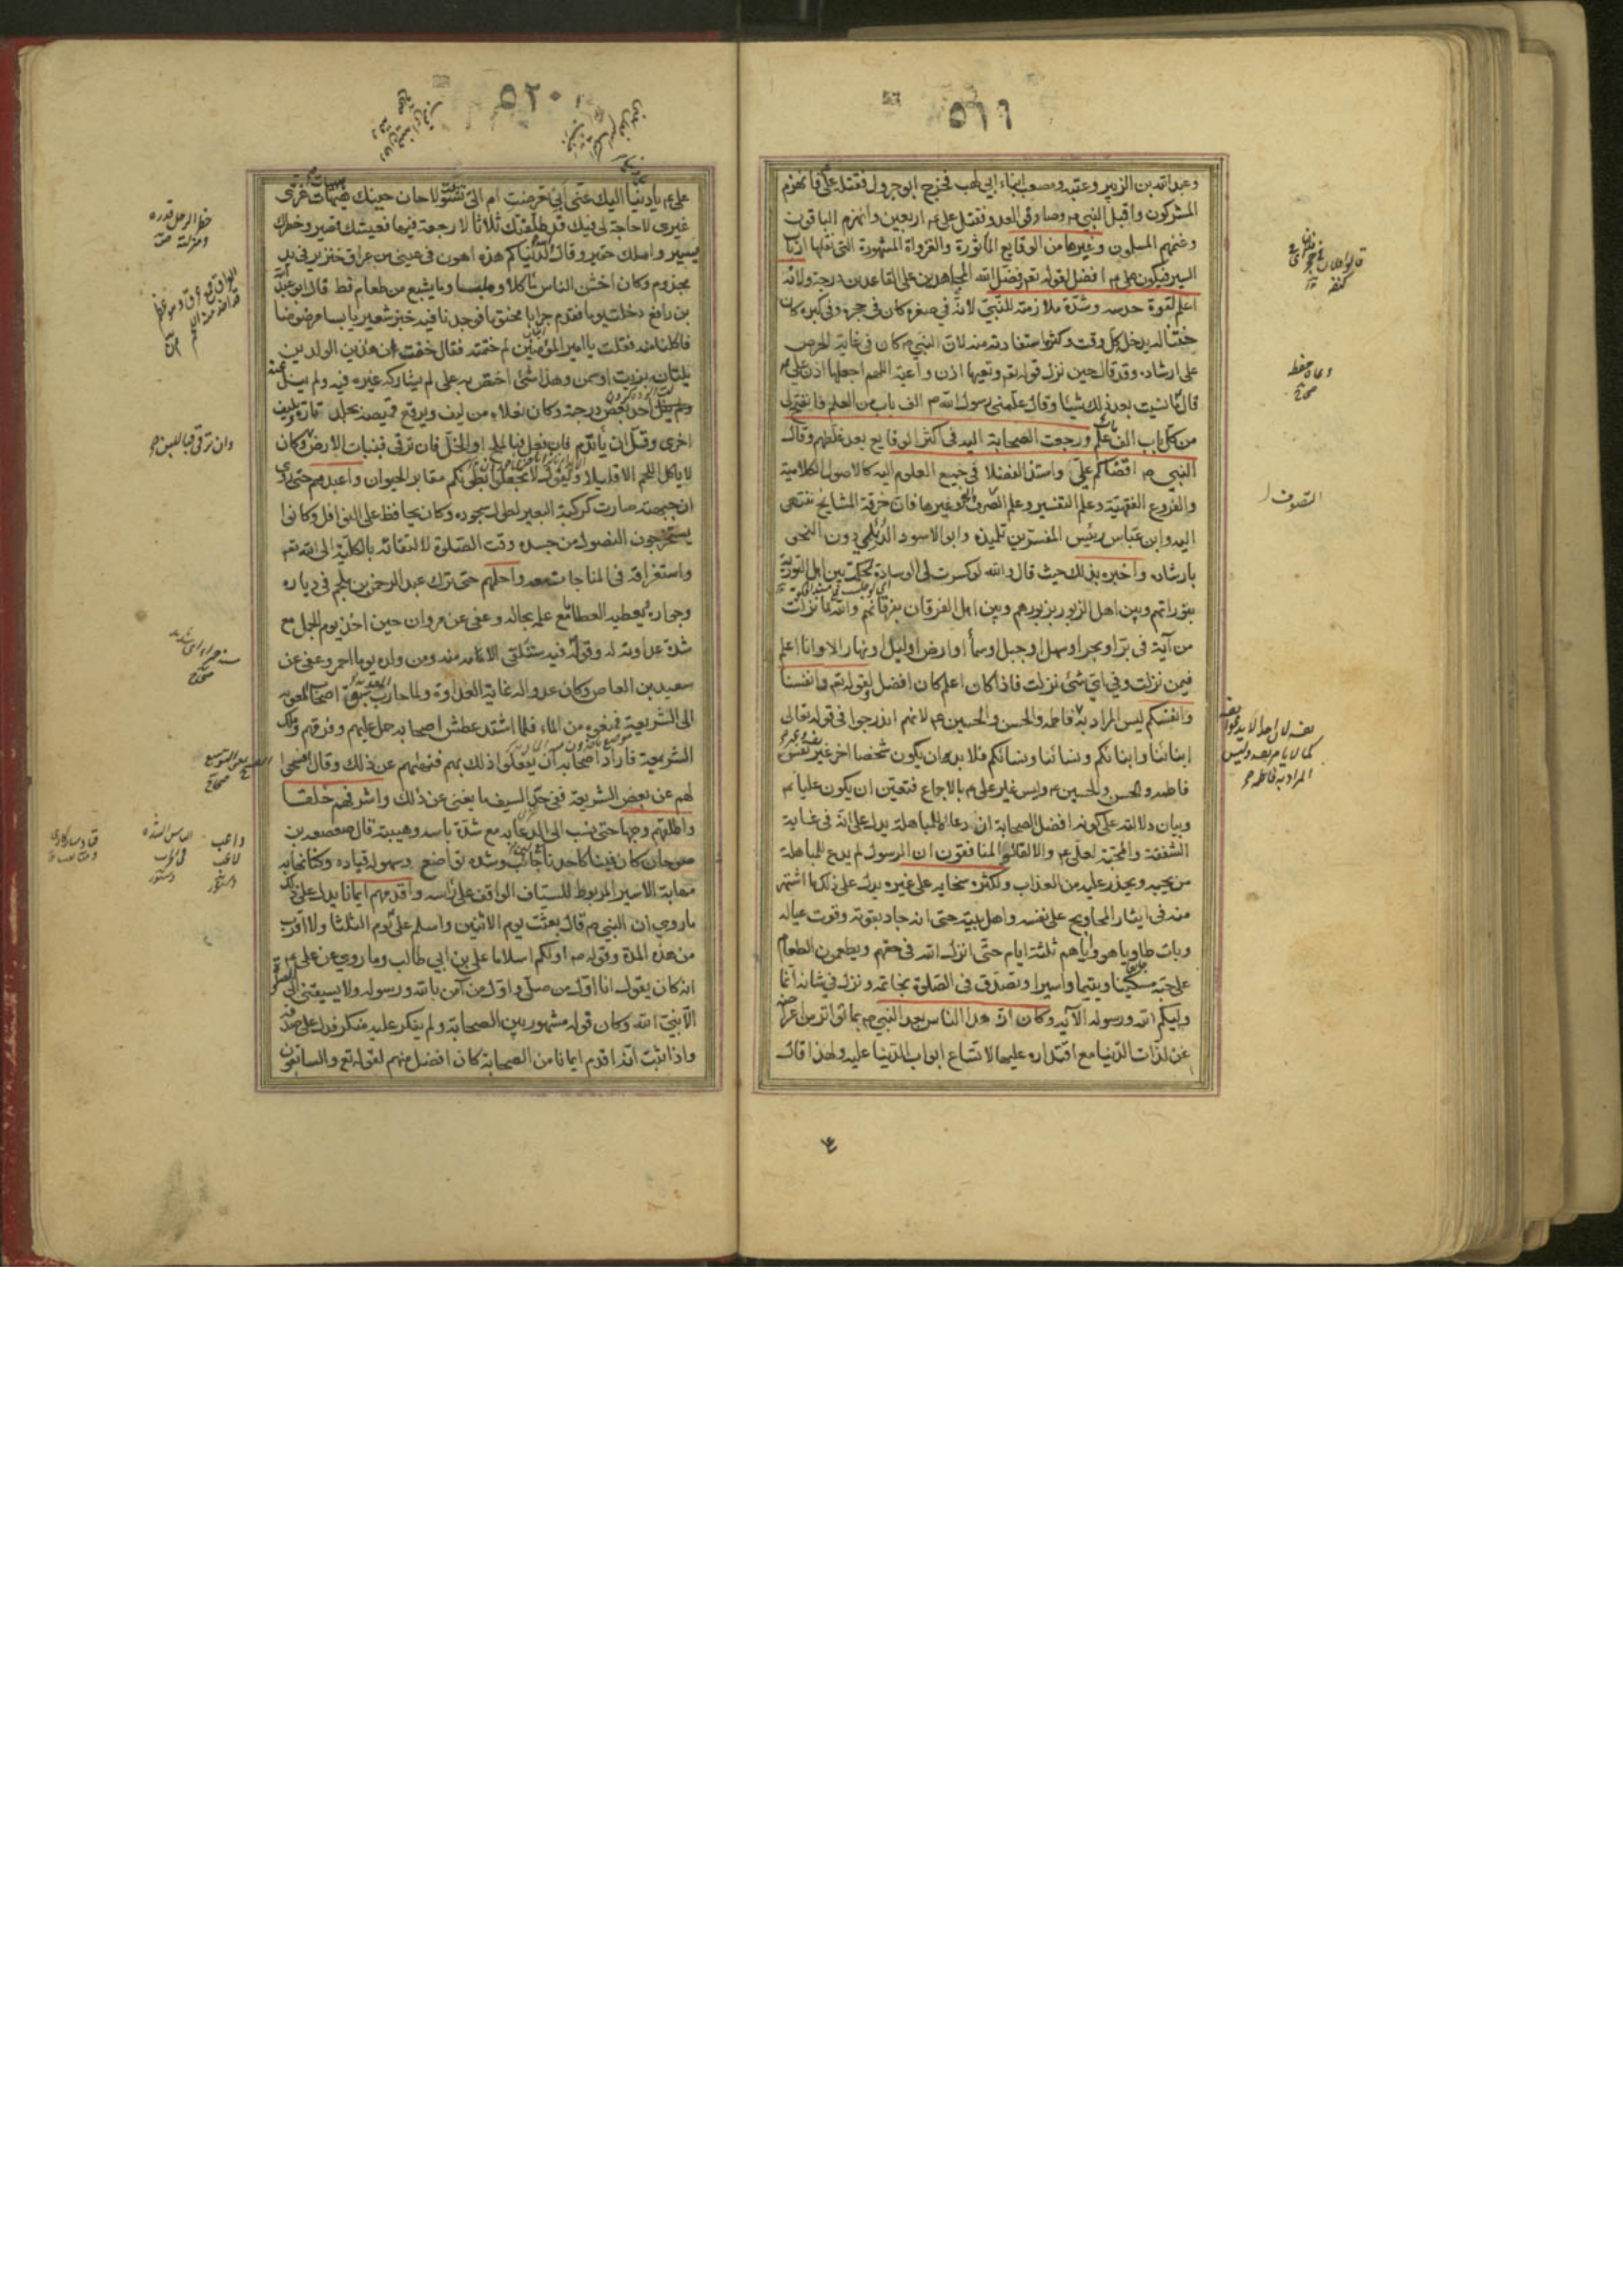 ٥١٩
وعبد الله بن الزبير وعقبة ومصعب ابناء ابي طلب فخرج ابو جرول فقتله علي فانهزم
المشركون واقبل النبي ص وصادفي العدو فقتل علي ع م اربعين وانهزم الباقون
وغنمهم المسلمون وغيرها من الوقايع المأثورة والغزواة المشهورة التي نقلها ارباب
السير فيكون علي ع م افضل لقوله تعم فضل الله المجاهدين على القاعدين درجة ولانه
اعلم لقوة حدسه وشدة ملازمته للنبي لانه في صغره كان في حجره وفي كبره كان
ختنا له يدخل كل وقت وكثرة استفادته منه لان النبي م كان في غاية الحرص
على ارشاده وقد قال حين نزل قوله تعم وتعيها اذن واعية اللهم اجعلها اذن علي ع م
قال ما نسيت بعد ذلك شيئا وقال علمني رسول الله ص الف باب من العلم فانفتح لي
من كل باب الف باب علم ورجعت الصحابة اليه في اكثر الوقايع بعد غلطهم وقال
النبي ص اقضاكم علي واستند الفضلا في جميع العلوم اليه كالاصول الكلامية
والفروع الفقهية وعلم التفسير وعلم التصوف والنحو وغيرها فان خرقة المشايخ تنتهى
اليه وابن عباس رئيس المفسرين تلميذه وابو الاسود الدئلي دون النحو
بارشاده واخبره بذلك حيث قال والله لو كسرت لي الوسادة لحكمت بين اهل التورية
بتوراتهم وبين اهل الزبور بزبورهم وبين اهل الفرقان بفرقانهم والله ما نزلت
من آية في بر او بحر او سهل او جبل او سمآ او ارض او ليل او نهار الا وانا اعلم
فيمن نزلت وفي اي شئ نزلت فاذا كان اعلم كان افضل ولقوله تعم وانفسنا
وانفسكم ليس المراد به فاطمة والحسن والحسين ع م لانهم اندرجوا في قوله تعالى
ابنائنا وابنائكم ونسائنا ونسائكم فلا بد ان يكون شخصا اخر غير نفسه
فاطمة والحسن والحسين ع م وليس غير علي ع م بالاجماع فتعين ان يكون عليا ع م
وبيان دلالته على كونه افضل الصحابة ان دعاه للمباهلة يدل على انه في غاية
الشفقة والمحبة لعلي ع م والا لقال المنافقون ان الرسول لم يدع للمباهلة
من يحبه ويحذر عليه من العذاب ولكثرة سخايه على غيره يدل على ذلك ما اشتهر
منه في ايثار المحاويج على نفسه واهل بيته حتى انه جاد بقوته وقوت عياله
وبات طاويا هو واياهم ثلثة ايام حتى انزل الله في حقهم ويطعمون الطعام
على حبه مسكينا ويتيما واسيرا وتصدق في الصلوة بخاتمه ونزل في شانه انما
وليكم الله ورسوله الآية وكان ازهد الناس بعد النبي ص بما تواتر من اعراضه
عن لذات الدنيا مع اقتداره عليها لاتساع ابواب الدنيا عليه ولهذا قال
التصوف
٥٢٠
علي ع م يا دنيا اليك عني ابي تعرضت ام الي تشوقت لا حان حينك هيهات غري
غيري لا حاجة لي فيك قد طلقتك ثلاثا لا رجعة فيها فعيشك قصير وخطرك
يسير واملك حقير وقال والله لدنياكم هذه اهون في عيني من عراق خنزير في يد
مجذوم وكان اخشن الناس ماكلا وملبسا وما يشبع من طعام قط قال ابن عبد الله
بن رافع دخلت يوما فقدم جرابا مختوما فوجدنا فيه خبز شعير يابسا مرضوضا
فاكلنا منه فقلت يا امير المؤمنين لم ختمته فقال خفت هذين الولدين
يلتان بزيت او سمن وهذا شئ اختص به علي لم يشاركه غيره فيه ولم ينل
احد بعض درجته وكان نعلاه من ليف ويرقع قميصه بجلد تارة وبليف
اخرى وقل ان يأتدم فان فعل فبالملح او الخل فان ترقى فبنبات الارض وكان
لا ياكل اللحم الا قليلا ويقول لا تجعلوا بطونكم مقابر الحيوان واعبدهم حتى روى
ان جبهته صارت كركبة البعير لطول سجوده وكان يحافظ على النوافل وكانوا
يستخرجون النصول من جسده وقت الصلوة لالتفاته بالكلية الى الله تعم
واستغراقه في المناجات معه واحلمهم حتى ترك عبد الرحمن بن ملجم في دياره
وجواره ويعطيه العطا مع علمه بحاله وعفى عن مروان حين اخذ يوم الجمل مع
شدة عداوته له وقوله فيه ستلقى الامة منه ومن ولده يوما احمر وعفى عن
سعيد بن العاص وكان عدوا له غاية العداوة ولما حارب معوية سبق اصحاب معوية
الى الشريعة فمنعوه من الماء فلما اشتد عطش اصحابه حمل عليهم وفرقهم وملك
الشريعة فاراد اصحابه ان يفعلوا ذلك بهم فنهاهم عن ذلك وقال افسحوا
لهم عن بعض الشريعة ففي حد السيف ما يغني عن ذلك واشرفهم خلقا
واطلقهم وجها حتى نسب الى الدعابة مع شدة باسه وهيبته قال صعصعة بن
صوحان كان فينا كاحدنا لين جانب وشدة تواضع وسهولة قياد وكنا نهابه
مهابة الاسير المربوط للسياف الواقف على راسه واقدمهم ايمانا يدل على ذلك
ما روي ان النبي ص قال بعثت يوم الاثنين واسلم علي يوم الثلثا ولا اقرب
من هذه المدة وقوله ص اولكم اسلاما علي بن ابي طالب وما روي عن علي ع م
انه كان يقول انا اول من صلى واول من آمن بالله ورسوله ولا يسبقني الى الصلوة
الا نبي الله وكان قوله مشهور بين الصحابة ولم ينكر عليه منكر فدل على صدقه
واذا ثبت انه اقدم ايمانا من الصحابة كان افضل منهم لقوله تع والسابقون
خطر الرجل قدره
ومنزلته